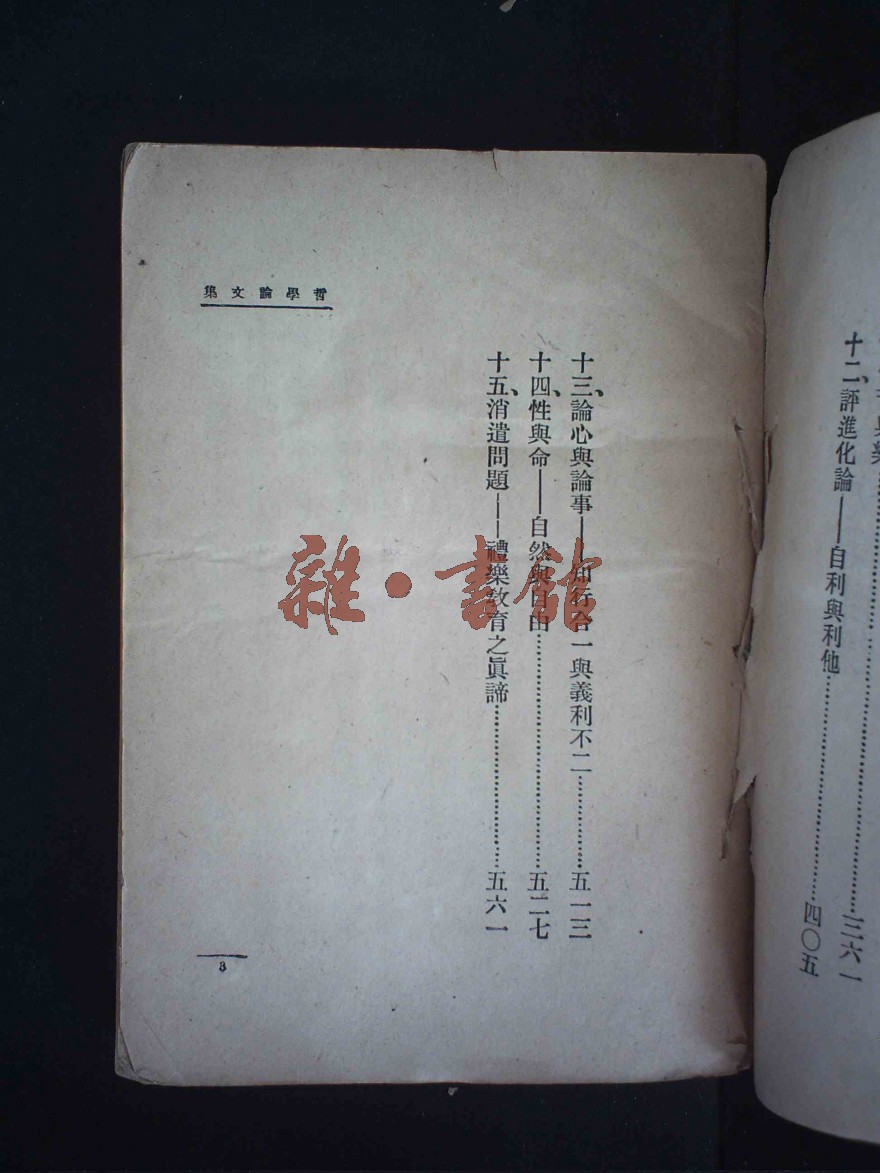 與樂……三六一
十二、評進化論——自利與利他……四〇五
哲學論文集
十三、論心與論事——知行合一與義利不二……五一三
十四、性與命——自然與自由……五二七
十五、消遣問題——禮樂教育之眞諦……五六一
3
雜·書館